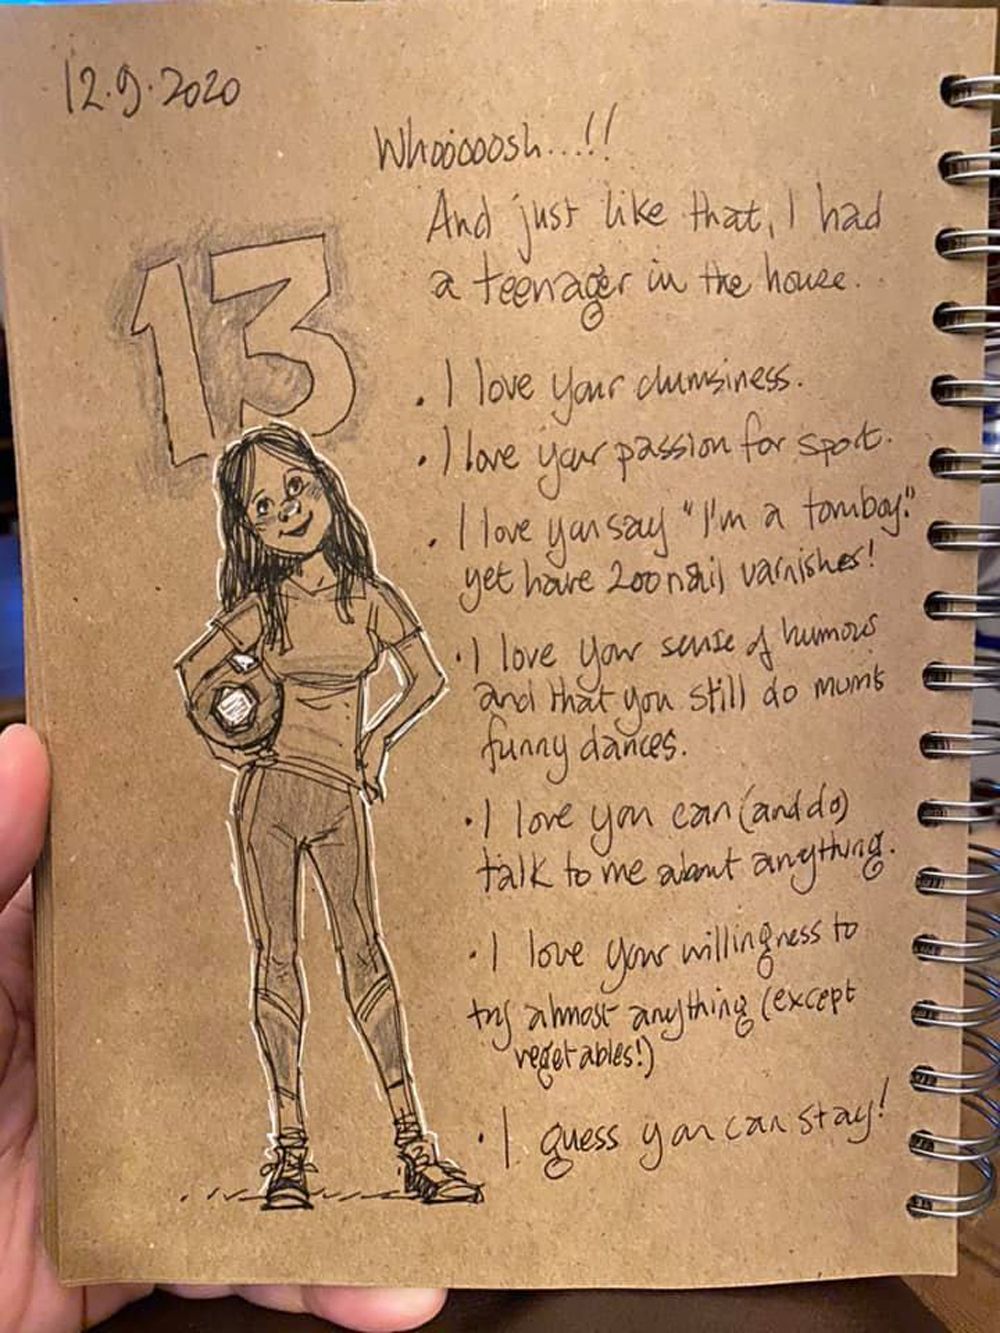 12.9.2020
Whooooosh...!!
And just like that, I had
a teenager in the house.
13
• I love your clumsiness.
• I love your passion for sport.
• I love you say "I'm a tomboy."
yet have 200 nail varnishes!
• I love your sense of humour
and that you still do mum's
funny dances.
• I love you can (and do)
talk to me about anything.
• I love your willingness to
try almost anything (except
vegetables!)
• I guess you can stay!